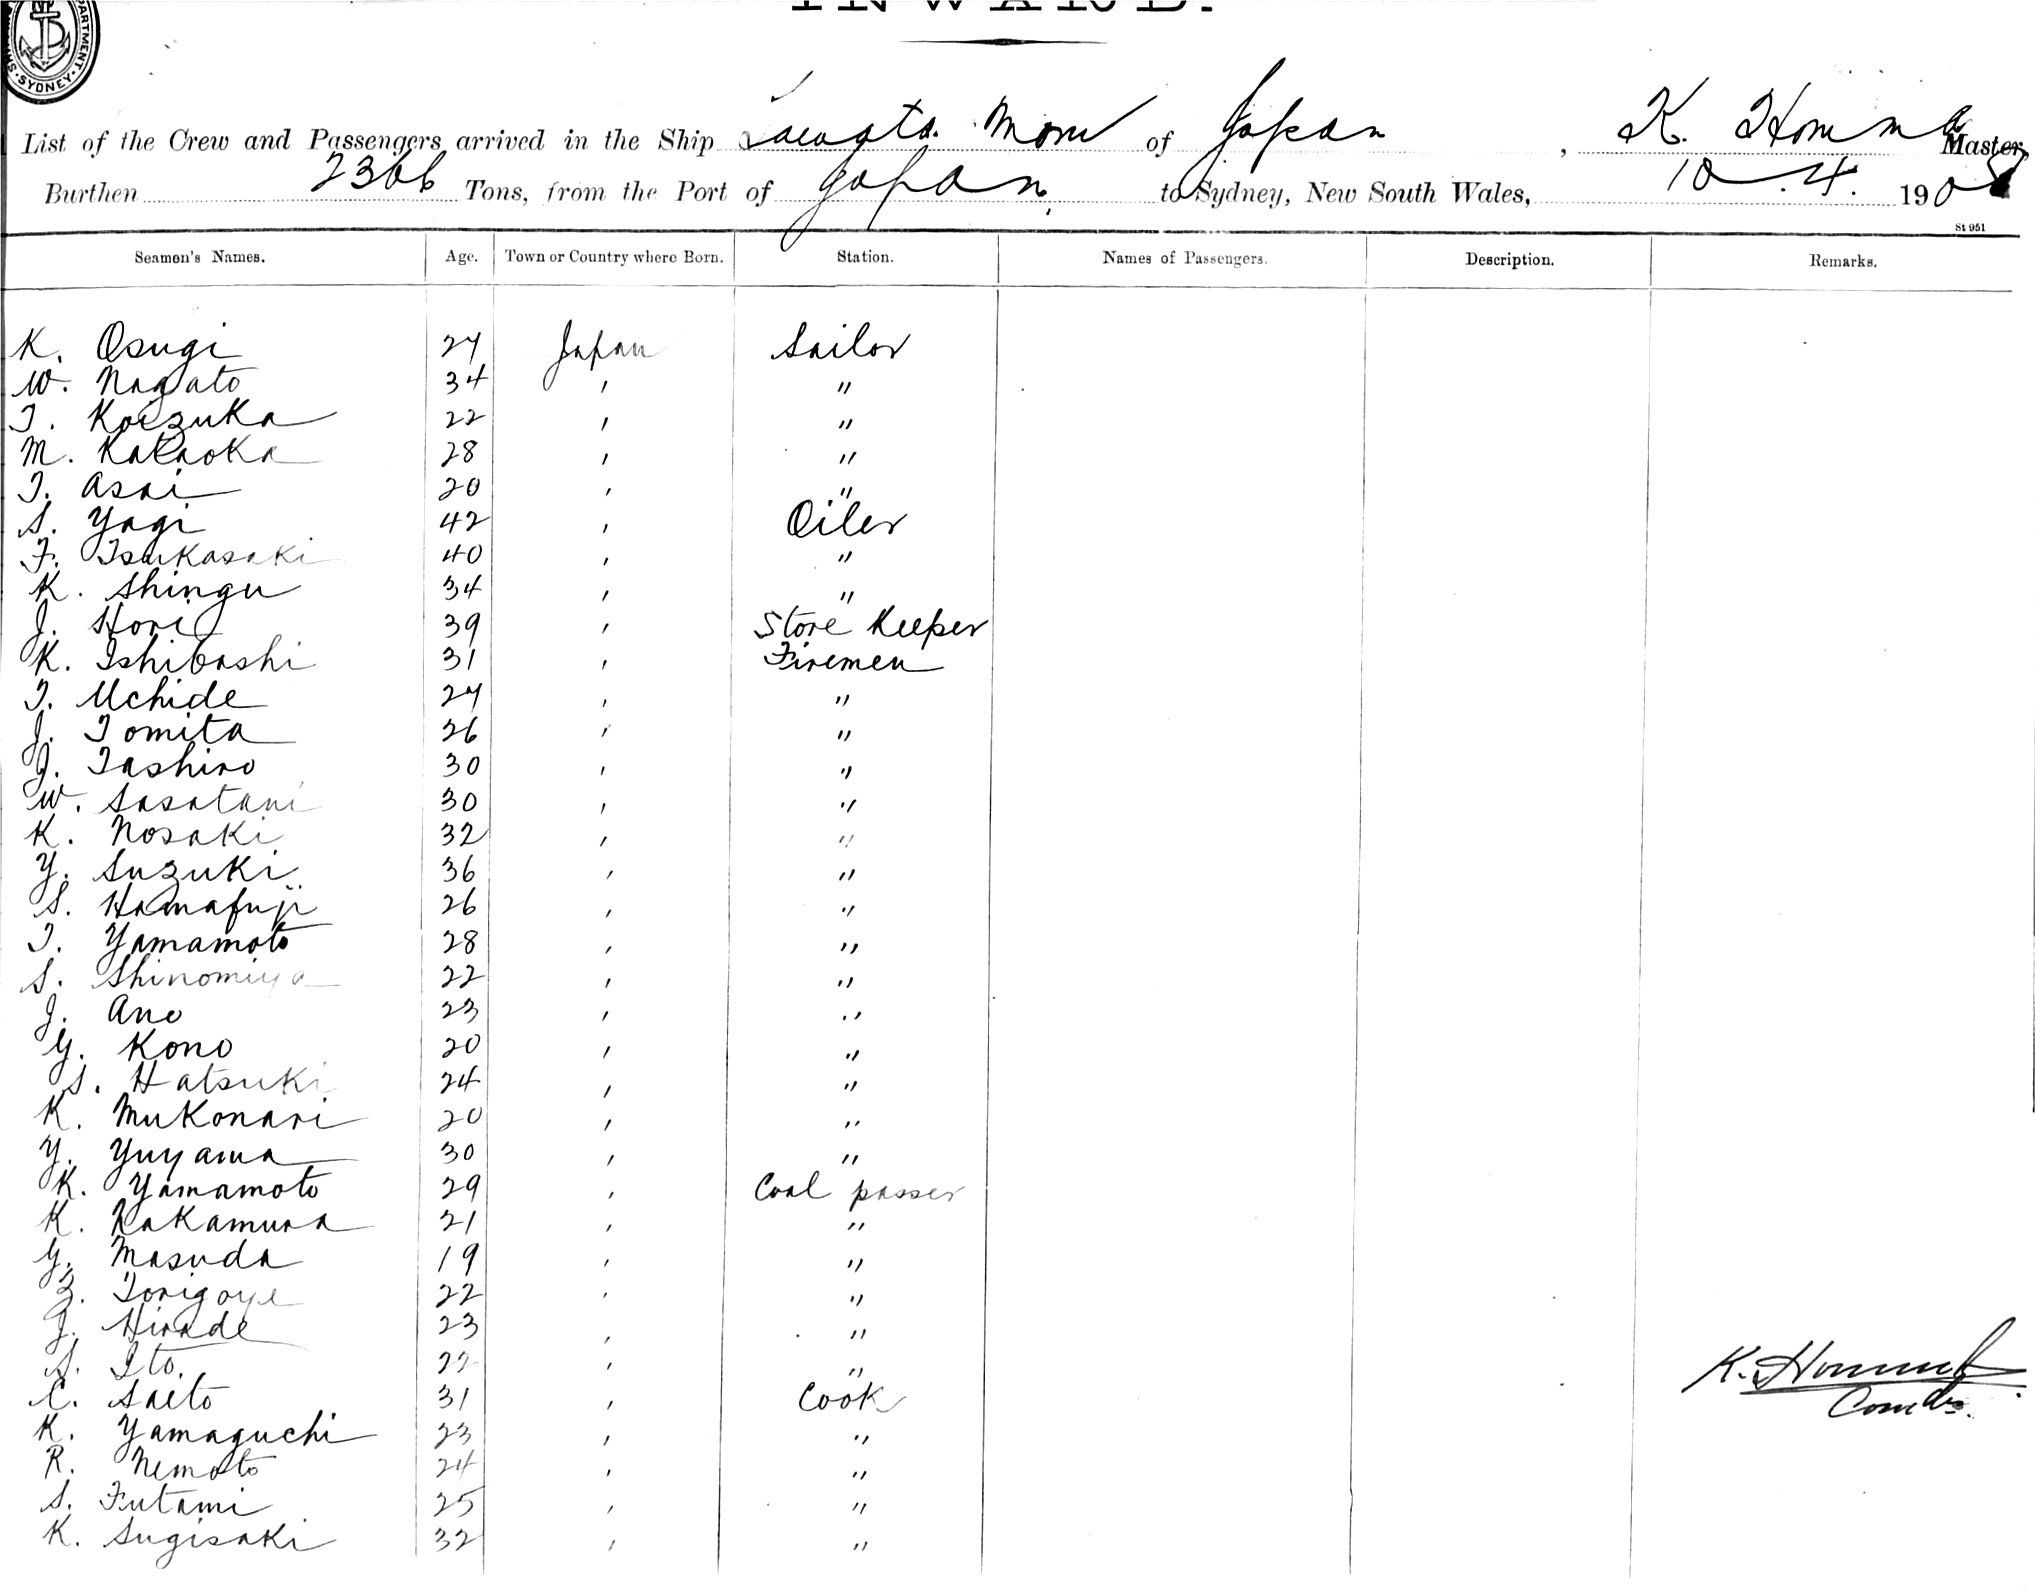 INWARD.
DEPARTMENT. SYDNEY.
List of the Crew and Passengers arrived in the Ship Maru of Japan, K. Homma Master,
Burthen 2366 Tons, from the Port of Japan to Sydney, New South Wales, 10.4. 190
St 951
Seamen's Names. Age. Town or Country where Born. Station. Names of Passengers. Description. Remarks.
K. Osugi 27 Japan Sailor
W. Nagato 34 ' "
T. Koizuka 22 ' "
M. Kataoka 28 ' "
T. Asai 20 ' "
S. Yagi 42 ' Oiler
F. Tsukasaki 40 ' "
K. Shingu 34 ' "
J. Hori 39 ' Store Keeper
K. Ishibashi 31 ' Firemen
T. Uchide 27 ' "
J. Tomita 26 ' "
J. Tashiro 30 ' "
W. Sasatani 30 ' "
K. Nosaki 32 ' "
Y. Suzuki 36 ' "
S. Hamafuji 26 ' "
T. Yamamoto 28 ' "
S. Shinomiya 22 ' "
J. Ano 23 ' "
Y. Kono 20 ' "
S. Hatsuki 24 ' "
K. Mukonari 20 ' "
Y. Yuyama 30 ' "
K. Yamamoto 29 ' Coal passer
K. Nakamura 21 ' "
Y. Masuda 19 ' "
Z. Torigoye 22 ' "
J. Hirade 23 ' "
S. Ito. 22 ' "
C. Saito 31 ' Cook
K. Yamaguchi 23 ' "
R. Nemoto 24 ' "
S. Futami 25 ' "
K. Sugisaki 32 ' "
K. Homma
Comdr.